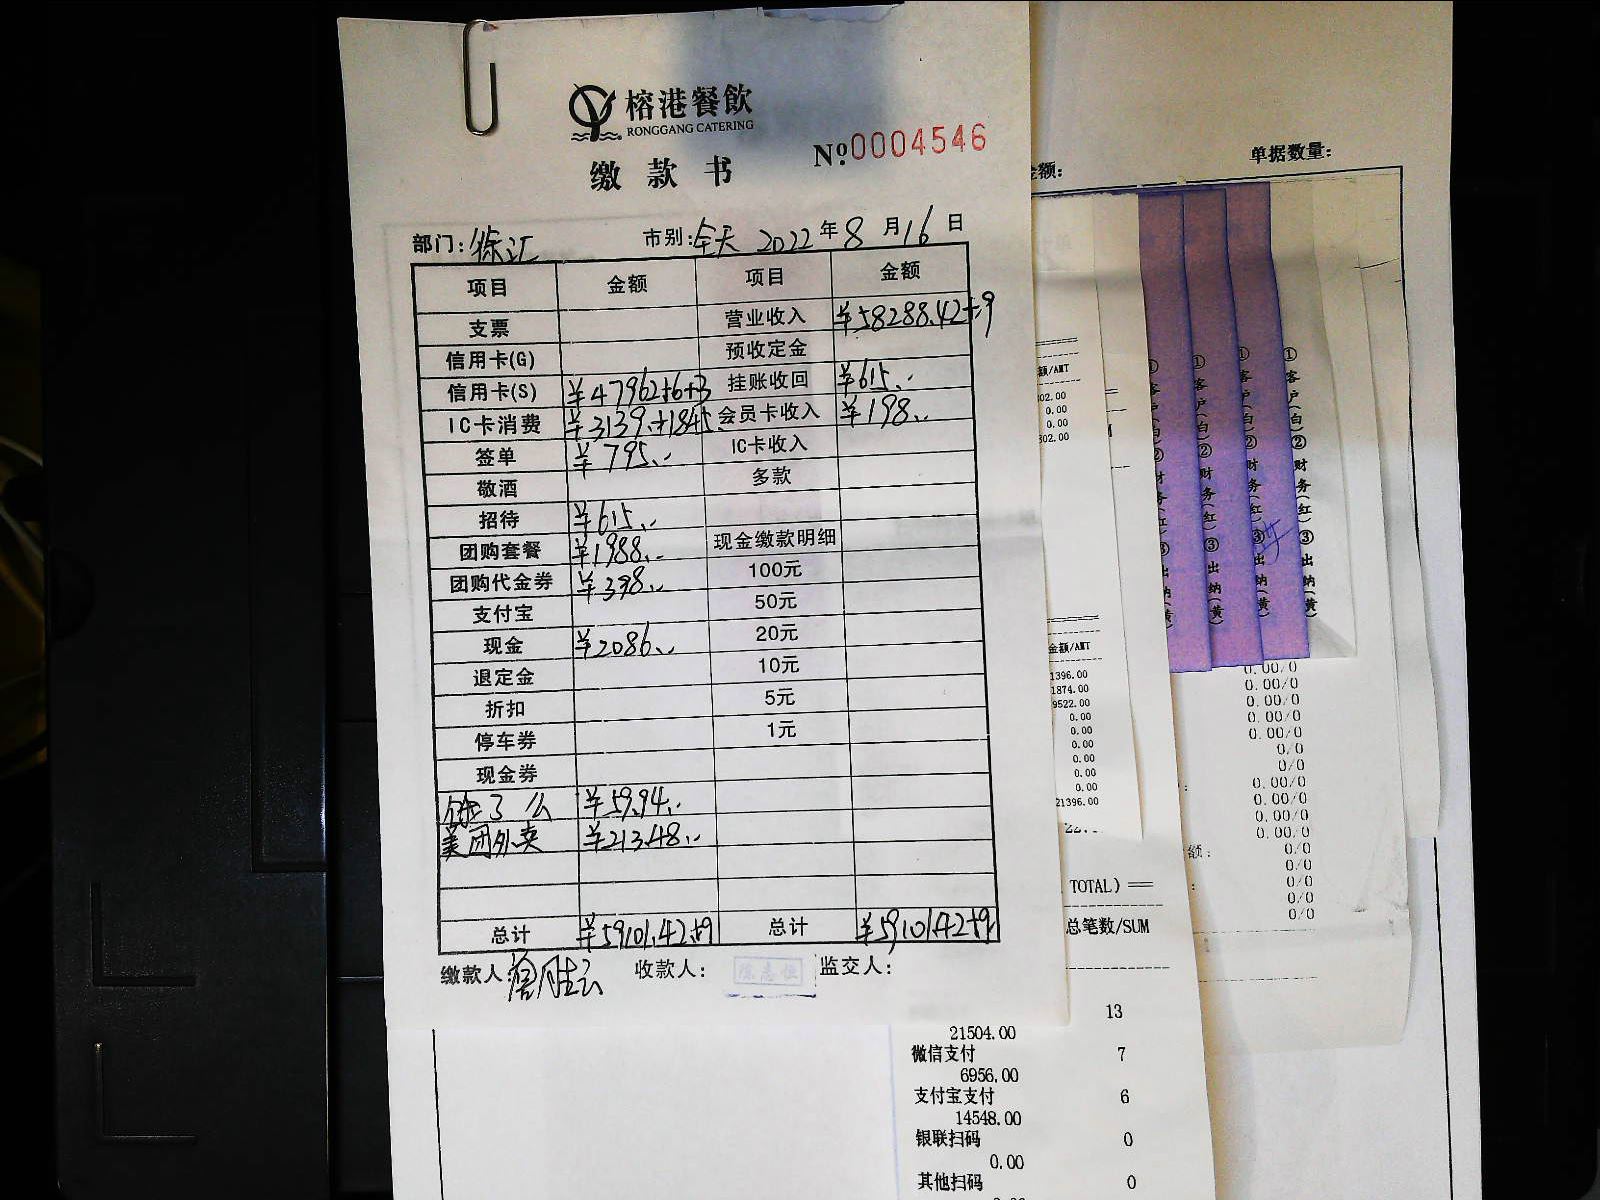 榕港餐飲
RONGGANG CATERING
缴款书
№ 0004546
部门: 徐汇 市别: 全天 2022年8月16日
项目 金额 项目 金额
支票 营业收入 ¥58288.42+9
信用卡(G) 预收定金
信用卡(S) ¥47962+6+3 挂账收回 ¥615..
IC卡消费 ¥3139.+1845. 会员卡收入 ¥198..
签单 ¥795.. IC卡收入
敬酒 多款
招待 ¥615..
团购套餐 ¥1988.. 现金缴款明细
团购代金券 ¥398.. 100元
支付宝 50元
现金 ¥2086.. 20元
退定金 10元
折扣 5元
停车券 1元
现金券
饿了么 ¥59.94..
美团外卖 ¥213.48..
总计 ¥59101.42+9 总计 ¥59101.42+9
缴款人 收款人: 陈志恒 监交人:
金额:
单据数量:
额/AMT
302.00
0.00
0.00
302.00
金额/AMT
1396.00
1874.00
9522.00
0.00
0.00
0.00
0.00
0.00
0.00
21396.00
TOTAL)══
总笔数/SUM
13
21504.00
微信支付 7
6956.00
支付宝支付 6
14548.00
银联扫码 0
0.00
其他扫码 0
①客户(白)②财务(红)③出纳(黄)
①客户(白)②财务(红)③出纳(黄)
①客户(白)②财务(红)③出纳(黄)
①客户(白)②财务(红)③出纳(黄)
0.00/0
0.00/0
0.00/0
0.00/0
0.00/0
0/0
0/0
0.00/0
0.00/0
0.00/0
0.00/0
额: 0/0
0/0
0/0
0/0
0/0